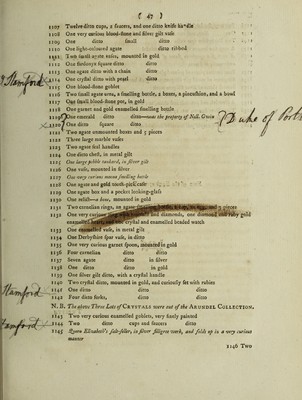 ( 47 )
1107 Twelve ditto cups, 2 seasers, and one ditto knife handle
1108 One very curious blood-stone and silver gilt vase
1109 One ditto small ditto
1110 One light-coloured agate ditto ribbed
1111 Two small agate vases, mounted in gold
1112 One sardonyx square ditto
1113 One agate ditto with a chain ditto
1114 One crystal ditto with pearl ditto
1115 One blood-stone goblet
1116 Two small agate urns, a smelling bottle, 2 boxes, a pincushion, and a bowl
1117 One small blood-stone pot, in gold
1118 One garnet and gold enamelled smelling bottle
1119 One emerald ditto ditto—was the property of Nell. Gwin
1120 One ditto square ditto
Duke of Port
1121 Two agate ormounted boxes and 5 pieces
1122 Three large marble vases
1123 Two agate seal handles
1124 One ditto chest, in metal gilt
1125 One large pebble tankard, in silver gilt
1126 One vase, mounted in silver
1127 One very curious mocoa smelling bottle
1128 One agate and gold tooth-pick case
1129 One agate box and a pocket looking-glass
1130 One relick—a bone, mounted in gold
1131 Two cornelian rings, an agate
1132 One very curious ring with diamonds, one diamond and ruby gold enamelled heart, and one crystal and enamelled beaded watch
1133 One enamelled vase, in metal gilt
1134 One Derbyshire spar vase, in ditto
1135 One very curious garnet spoon, mounted in gold
1136 Four cornelian ditto ditto
1137 Seven agate ditto in silver
1138 One ditto ditto in gold
1139 One silver gilt ditto, with a crystal handle
1140 Two crystal ditto, mounted in gold, and curiously set with rubies
Stamford
1141 One ditto ditto ditto
1142 Four ditto forks, ditto ditto
N. B. The above Three Lots of CRYSTALS were out of the ARUNDEL COLLECTION.
1143 Two very curious enamelled goblets, very finely painted
1144 Two ditto cups and seasers ditto
1145 Queen Elizabeth's salt-seller, in silver filigree work, and folds up in a very curious
manner
1146 Two